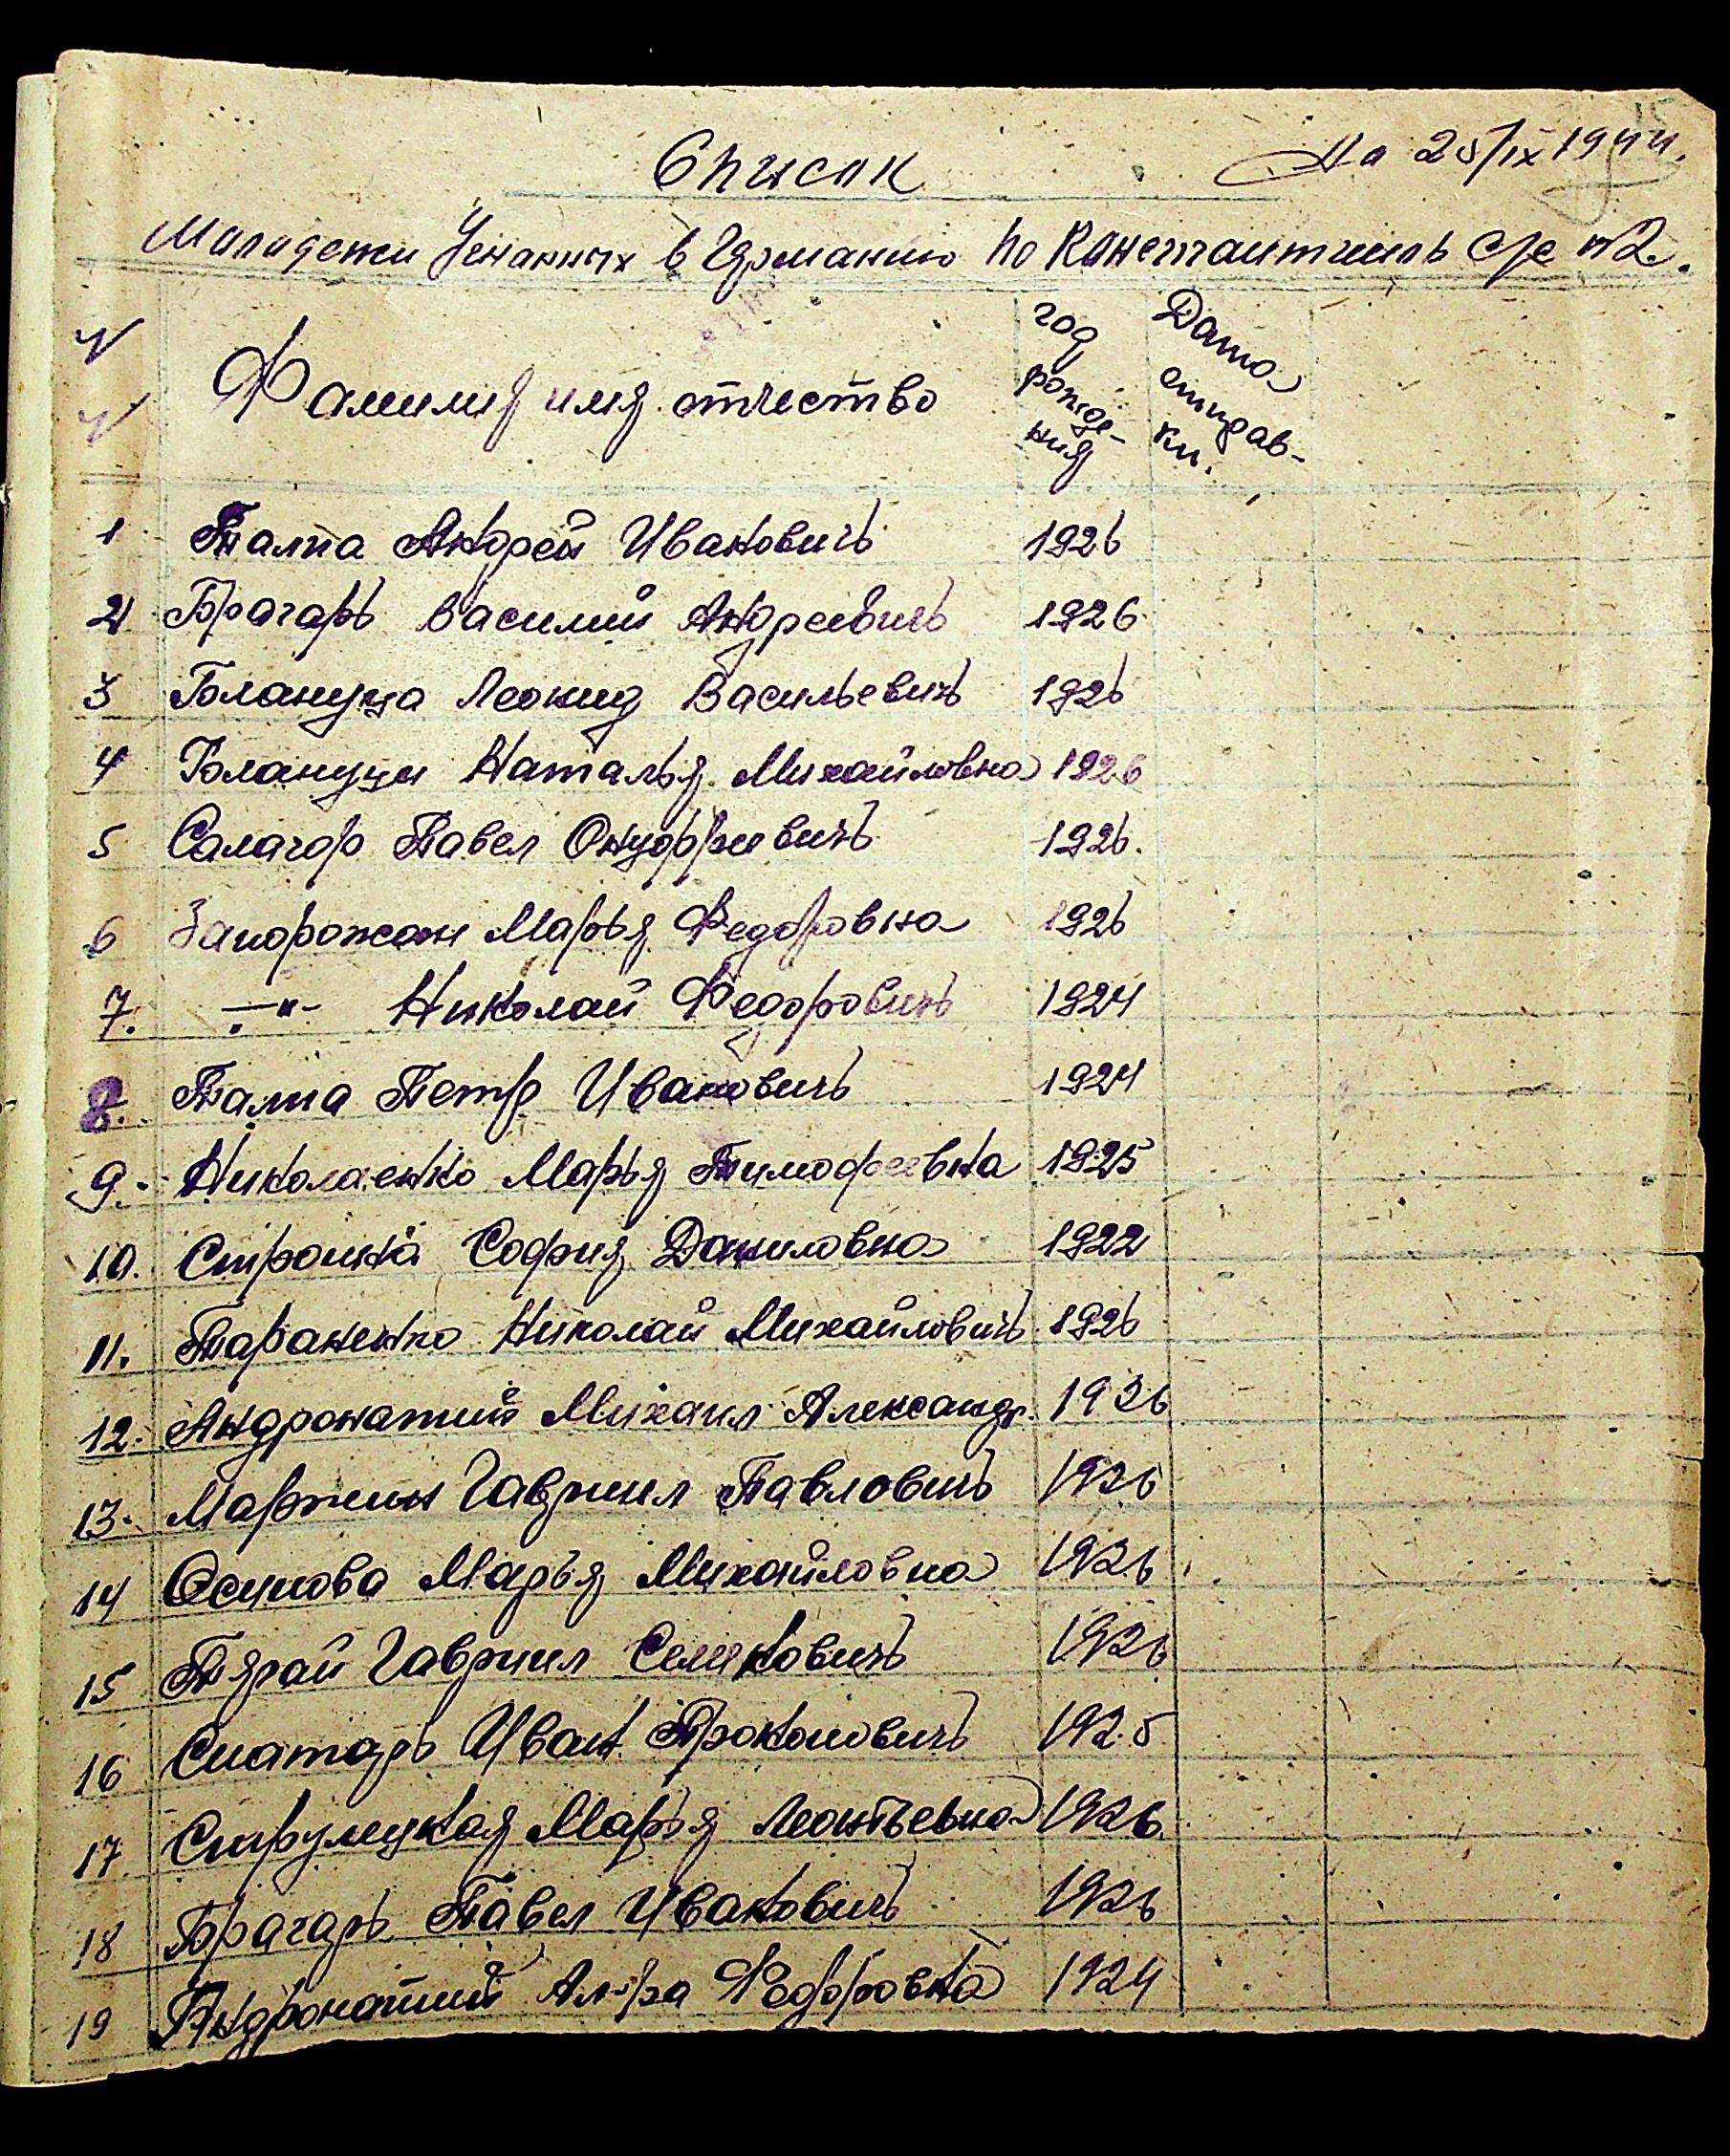 Список
На 25/IX 1944.
Маладежи Угнанных в Германию по Константиновль с/с №2.
№
№
Фамилия имя отчество
год рожде-
ния
Дата
отправ-
ки.
1 Палпа Андрей Ивановичь 1926
2 Брагарь Василий Андреевичь 1926
3 Галануца Леонид Васильевичь 1926
4 Галануци Наталья Михайловна 1926
5 Салагор Павел Онуфриевичь 1926.
6 Запорожан Марья Федоровна 1926
7. —"— Николай Федоровичь 1924
8. Палпа Петр Ивановичь 1924
9. Николаенко Марья Тимофеевна 1925
10. Строина София Даниловна 1922
11. Тараненко Николай Михайловичь 1926
12. Андронатий Михаил Александр. 1926
13. Маржин Гавриил Павловичь 1926
14 Осипова Марья Михайловна 1926
15 Тярай Гавриил Семеновичь 1926
16 Снатарь Иван Прокоповичь 1925
17 Струлецкая Марья Леонтьевна 1926
18 Брагарь Павел Ивановичь 1926
19 Андронатий Ал-ра Федоровна 1924